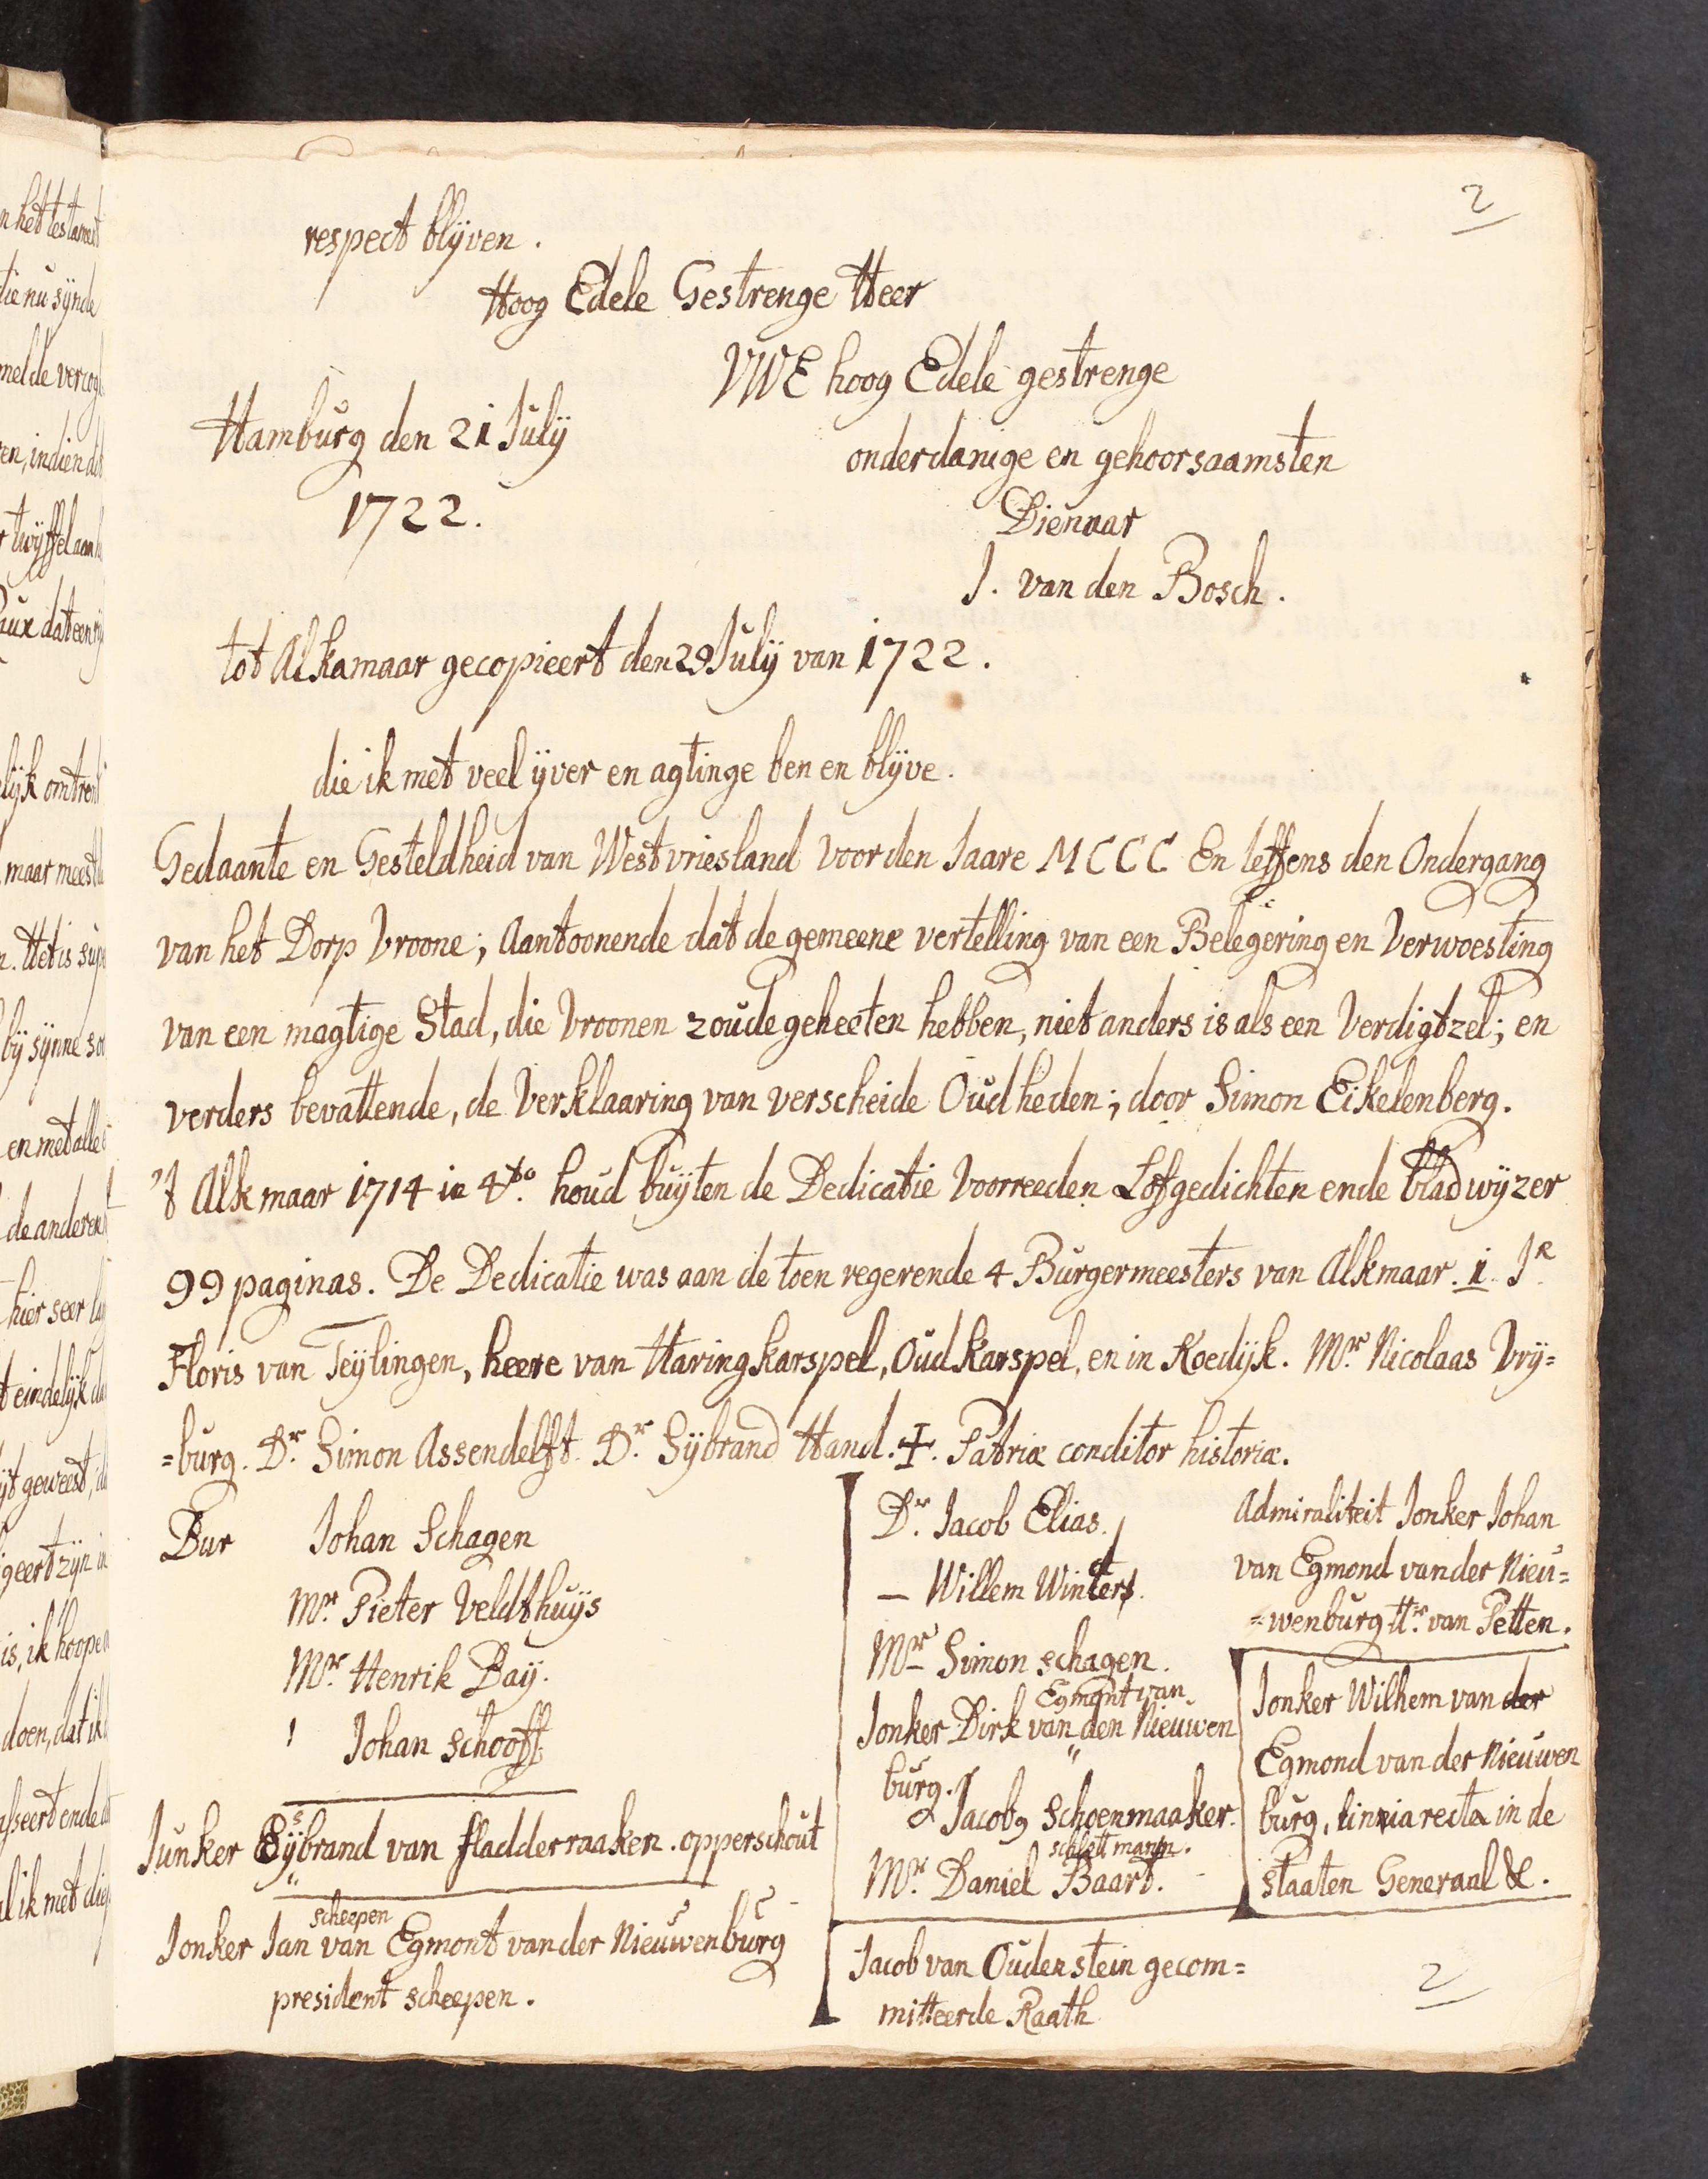 2
respect blÿven.
Hoog Edele Gestrenge Heer
VWE hoog Edele gestrenge
Hamburg den 21 Julÿ
1722.
onderdanige en gehoorsaamsten
Dienaar
J. van den Bosch.
tot Alkamaar gecopieert den 29 Julÿ van 1722.
die ik met veel ÿver en agtinge ben en blÿve.
Gedaante en Gesteldheid van Westvriesland voor den Jaare MCCC En teffens den Ondergang
van het Dorp Vroone; Aantoonende dat de gemeene vertelling van een Belegering en Verwoesting
van een magtige Stad, die Vroonen zoude geheeten hebben, niet anders is als een Verdigtzel; en
verders bevattende, de Verklaaring van verscheide Oudheden; door Simon Eikelenberg.
't Alkmaar 1714 in 4to. houd buÿten de Dedicatie Voorreeden Lofgedichten ende bladwÿzer
99 paginas. De Dedicatie was aan de toen regerende 4 Burgermeesters van Alkmaar. 1. Jr.
Floris van Teÿlingen, heere van Haringkarspel, Oudkarspel, en in Koedÿk. Mr. Nicolaas Vrÿ=
=burg. Dr. Simon Assendelfft. Dr. Sÿbrand Hand. ┼. Patriæ conditor historiæ.
Bur Johan Schagen
Mr. Pieter Veldthuÿs
Mr. Henrik Baÿ.
Johan Schooff
Junker Sÿbrand van fladderraaken. opperschout
scheepen
Jonker Jan van Egmont vander Nieuwenburg
president scheepen.
Dr. Jacob Elias.
— Willem Winters.
Mr Simon schagen.
Egmont van
Jonker Dirk van den Nieuwen
burg.
Jacobg Schoenmaaker.
schlottmann.
Mr. Daniel Baart.
Jacob van Oudenstein gecom=
mitteerde Raath
Admiraliteit Jonker Johan
van Egmond vander Nieu=
=wenburg Hr. van Petten.
Jonker Wilhem van der
Egmond van der Nieuwen
burg, linnia recta in de
staaten Generaal &.
2